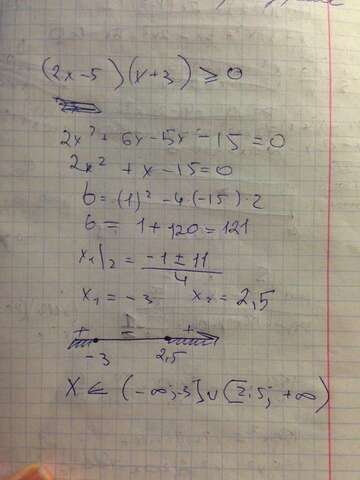 (2x-5)(x+3) ≥ 0
2x² + 6x - 5x - 15 = 0
2x² + x - 15 = 0
б = (1)² - 4(-15)·2
б = 1 + 120 = 121
x₁/₂ = (-1 ± 11)/4
x₁ = -3 x₂ = 2,5
+ - +
-3 2,5
X ∈ (-∞; -3] ∪ [2,5; +∞)